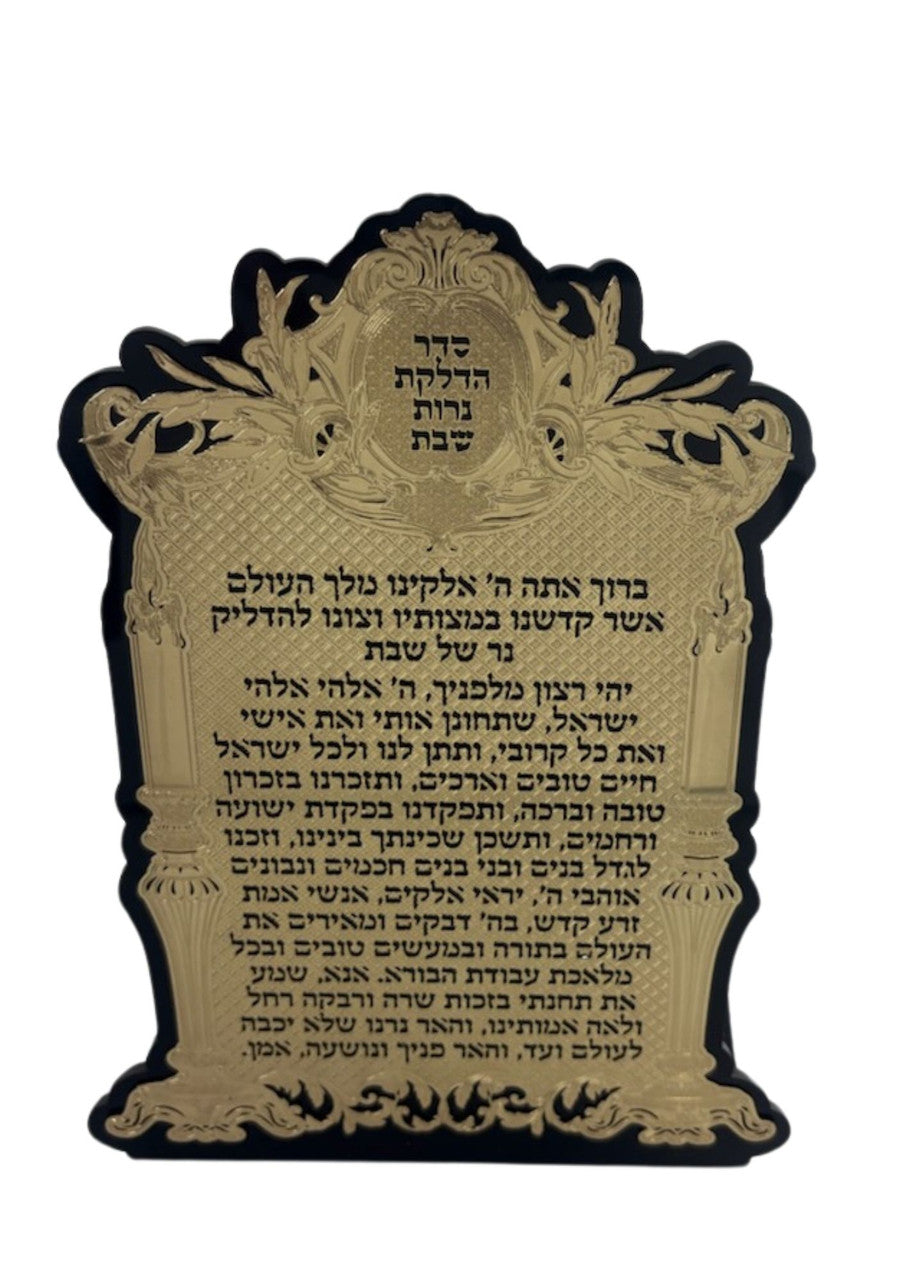 סדר
הדלקת
נרות
שבת
ברוך אתה ה' אלקינו מלך העולם
אשר קדשנו במצותיו וצונו להדליק
נר של שבת
יהי רצון מלפניך, ה' אלהי אלהי
ישראל, שתחונן אותי ואת אישי
ואת כל קרובי, ותתן לנו ולכל ישראל
חיים טובים וארכים, ותזכרנו בזכרון
טובה וברכה, ותפקדנו בפקדת ישועה
ורחמים, ותשכן שכינתך בינינו, וזכנו
לגדל בנים ובני בנים חכמים ונבונים
אוהבי ה', יראי אלקים, אנשי אמת
זרע קדש, בה' דבקים ומאירים את
העולם בתורה ובמעשים טובים ובכל
מלאכת עבודת הבורא. אנא, שמע
את תחנתי בזכות שרה ורבקה רחל
ולאה אמותינו, והאר נרנו שלא יכבה
לעולם ועד, והאר פניך ונושעה, אמן.